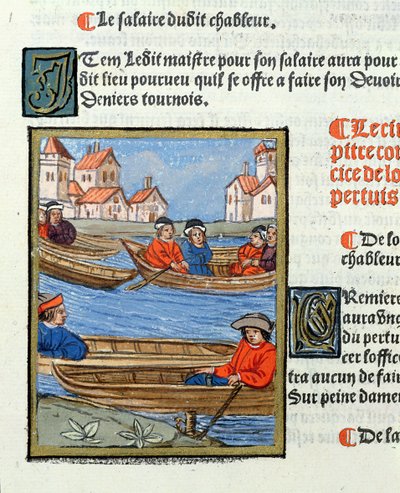 Le salaire dudit chableur.
Item Ledit maistre pour son salaire aura pour
dit lieu pourueu quil se offre a faire son Deuoir
Deniers tournois.
Le cin
pitre con
cice de lo
pertuis
De lo
chableur
Premiere
aura vng
du pertu
cer loffic
tra aucun de fair
Sur peine damen
De la